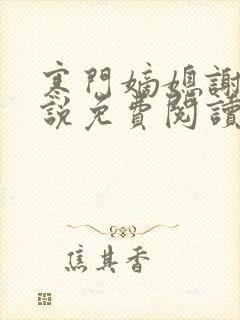 寒門嫡媳謝
說免費閱讀
焦其香